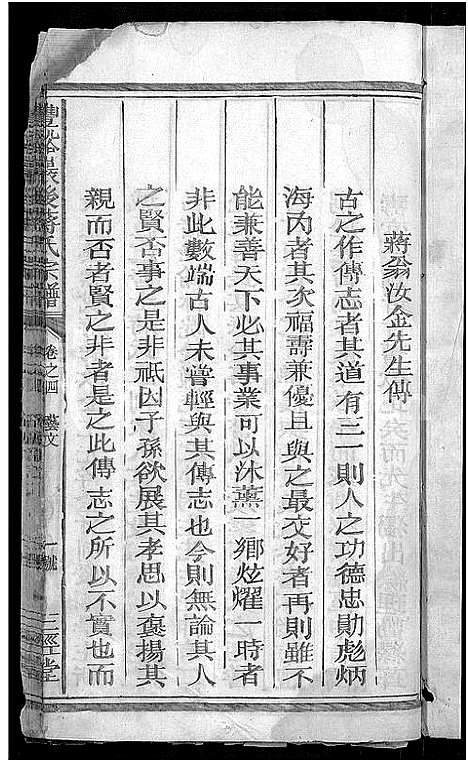 蔣翁汝金先生傳
古之作傳志者其道有三一則人之功德忠勛彪炳
海內者其次福壽兼優且與之最交好者再則雖不
能兼善天下必其事業可以沐薰一鄉炫耀一時者
非此數端古人未嘗輕與其傳志也今則無論其人
之賢否事之是非祇因子孫欲展其孝思以襃揚其
親而否者賢之非者是之此傳志之所以不實也而
後蔣氏宗譜
卷之四 藝文
一號
三徑堂